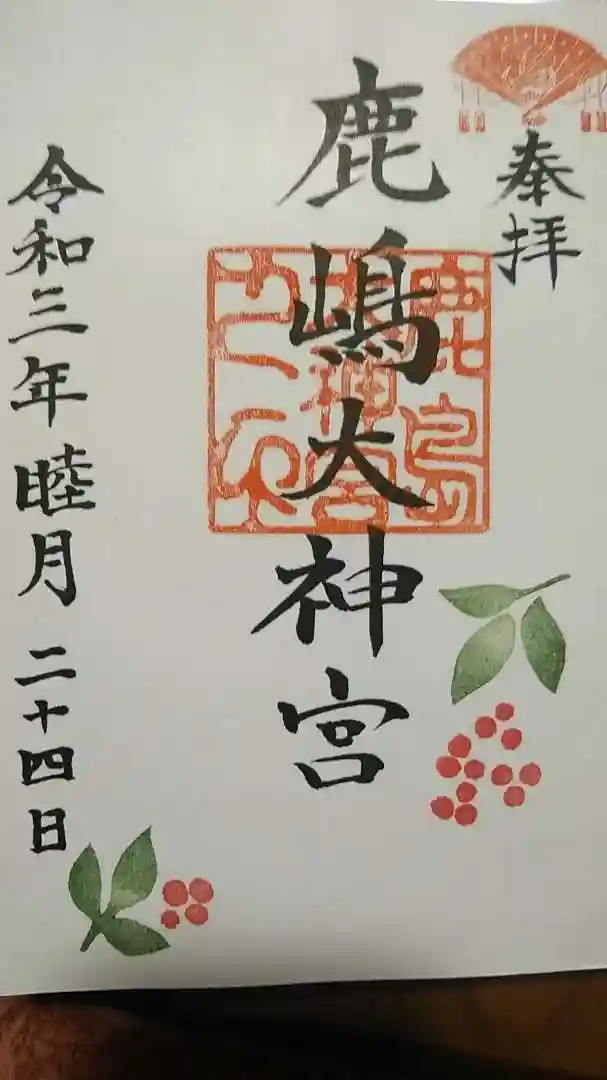 奉拝
鹿嶋大神宮
令和三年睦月二十四日